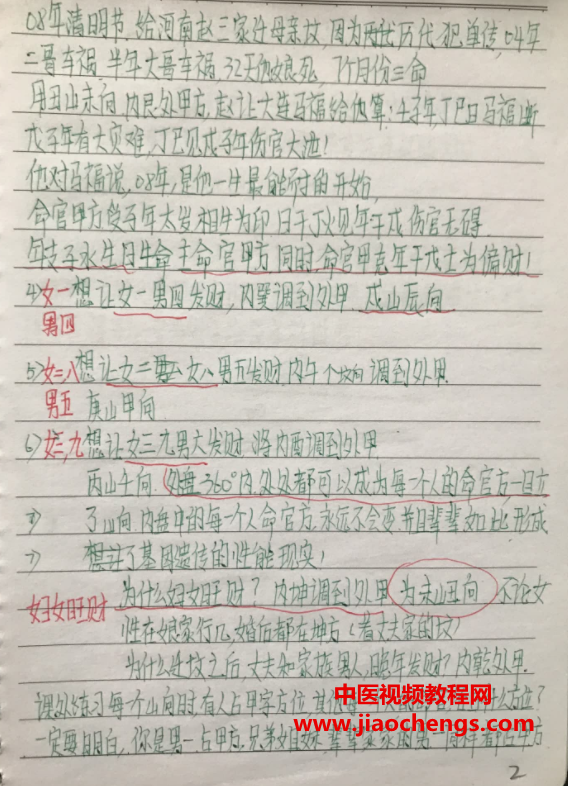 08年清明节,给河南赵三家迁母亲坟,因为历代犯单传,04年
二哥车祸,半年大哥车祸,32天他娘死,7个月份三命
用丑山未向,内艮外甲方,赵让大连马福给他算:壬子年,丁巳日马福断
戊子年有大灾难,丁巳见戊子年伤官大泄!
他对马福说,08年,是他一生最能付的开始,
命宫甲方受子年太岁相生为印,日干丁火见年干戊伤官无碍,
年支子水生日生命主命宫甲方,同时,命宫甲克年干戊土为偏财!
4)女一想让女一男四发财,内巽调到外甲,戌山辰向
男四
5)女二八想让女二女八男五发财,内午个坟向调到外甲
男五 庚山甲向
6)女三,九想让女三九男六发财,将内酉调到外甲
丙山壬向,外盘360°内,处处都可以成为每一个人的命宫方,一旦立
了山向,内盘中的每一个人命宫方,永远不会变,并且辈辈如此,形成
了基因遗传的性能现实!
为什么妇女旺财?内坤调到外甲,为未山丑向,不论女
妇女旺财
性在娘家行几,婚后都在坤方(看丈夫家的坟)
为什么迁坟之后,丈夫和家族男人,晚年发财?内乾外甲.
课外练习每个山向时,有人占甲字方位,其他
么方位?
一定要明白,你是男一,占甲方,兄弟姐妹,辈辈家家的男一同样都占甲方
中医视频教程网
www.jiaochengs.com
2